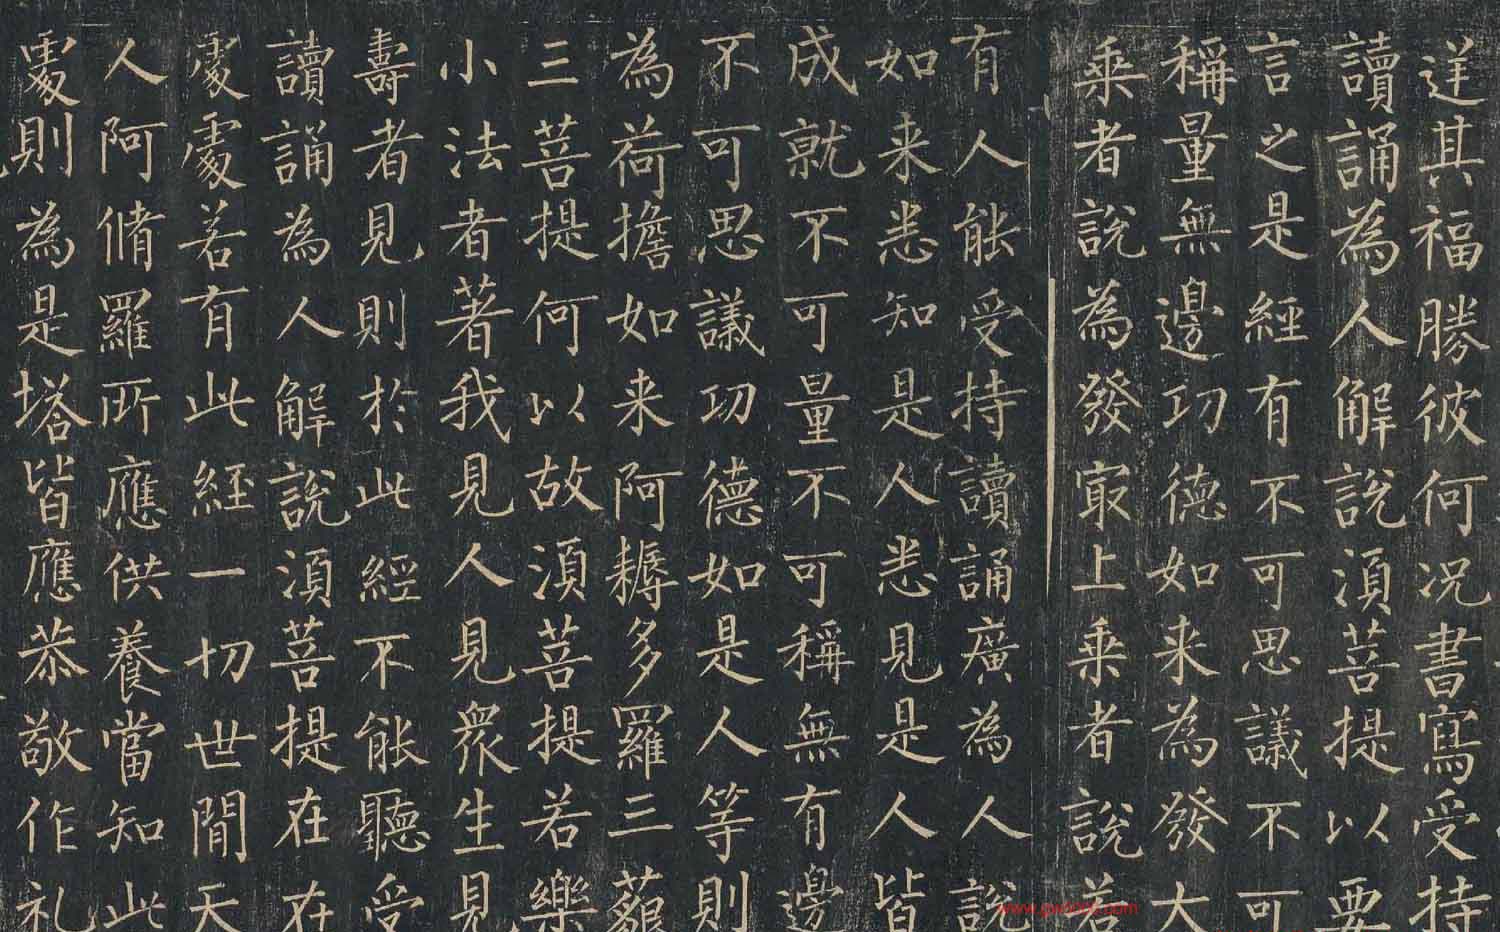 逆其福勝彼何況書寫受持
讀誦為人解說湏菩提以要
言之是經有不可思議不可
稱量無邊功德如来為發大
乘者說為發㝡上乘者說若
有人能受持讀誦廣為人說
如来悉知是人悉見是人皆
成就不可量不可稱無有邊
不可思議功德如是人等則
為荷擔如来阿耨多羅三藐
三菩提何以故湏菩提若樂
小法者著我見人見衆生見
壽者見則於此經不能聽受
讀誦為人解說湏菩提在在
處處若有此經一切世間天
人阿脩羅所應供養當知此
處則為是塔皆應恭敬作礼